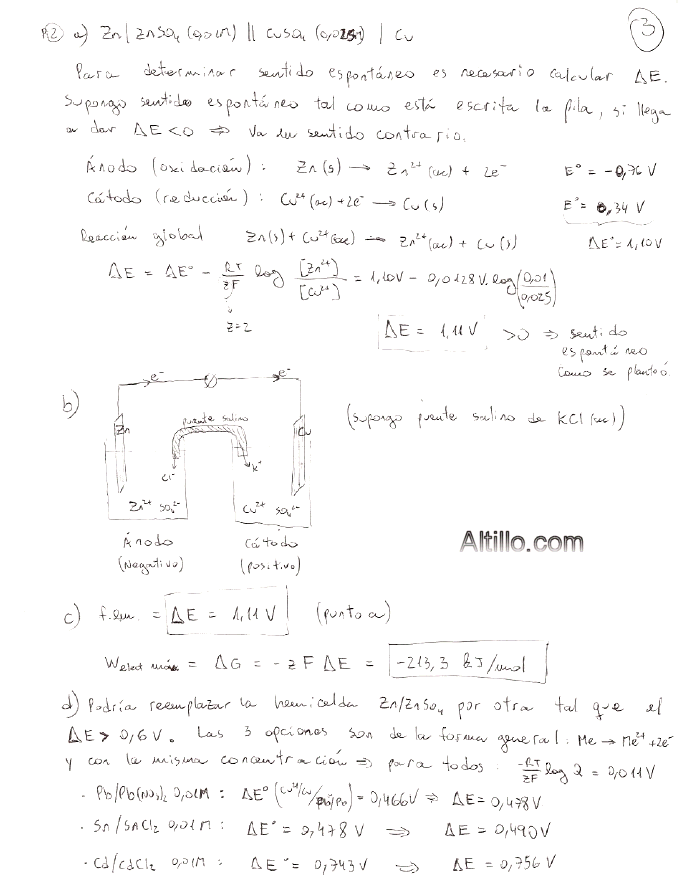 P2) a) Zn | ZnSO₄ (0,01M) || CuSO₄ (0,025M) | Cu
3
Para determinar sentido espontáneo es necesario calcular ΔE.
Supongo sentido espontáneo tal como está escrita la pila, si llega
a dar ΔE<0 ⇒ va en sentido contrario.
Ánodo (oxidación): Zn(s) → Zn²⁺(ac) + 2e⁻ E° = -0,76 V
Cátodo (reducción): Cu²⁺(ac) + 2e⁻ → Cu(s) E° = 0,34 V
Reacción global Zn(s) + Cu²⁺(ac) → Zn²⁺(ac) + Cu(s) ΔE° = 1,10V
ΔE = ΔE° - RT/zF log [Zn²⁺]/[Cu²⁺] = 1,10V - 0,0128V. log(0,01/0,025)
z=2
ΔE = 1,11V >0 ⇒ sentido
espontáneo
como se planteó.
b)
e⁻ e⁻
(supongo puente salino de KCl (ac))
Zn puente salino Cu
Cl⁻ K⁺
Zn²⁺ SO₄²⁻ Cu²⁺ SO₄²⁻
Ánodo Cátodo
(Negativo) (positivo)
Altillo.com
c) f.em. = ΔE = 1,11 V (punto a)
Welect máx = ΔG = -zFΔE = -213,3 kJ/mol
d) Podría reemplazar la hemicelda Zn/ZnSO₄ por otra tal que el
ΔE > 0,6V. Las 3 opciones son de la forma general: Me → Me²⁺ + 2e⁻
y con la misma concentración ⇒ para todos. -RT/zF log Q = 0,011V
· Pb/Pb(NO₃)₂ 0,01M : ΔE° (Cu²⁺/Cu/Pb²⁺/Pb) = 0,466V ⇒ ΔE = 0,478V
· Sn/SnCl₂ 0,01M : ΔE° = 0,478V ⇒ ΔE = 0,490V
· Cd/CdCl₂ 0,01M : ΔE° = 0,743V ⇒ ΔE = 0,756V